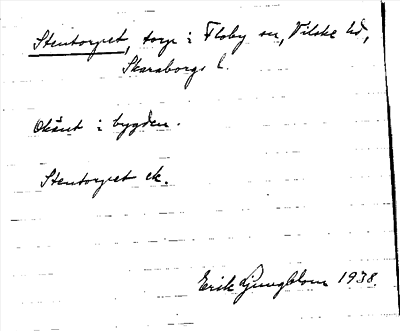 Stentorpet, torp i Floby sn, Vilske hd,
Skaraborgs l.
Okänt i bygden.
Stentorpet ek.
Erik Ljungblom 1938.